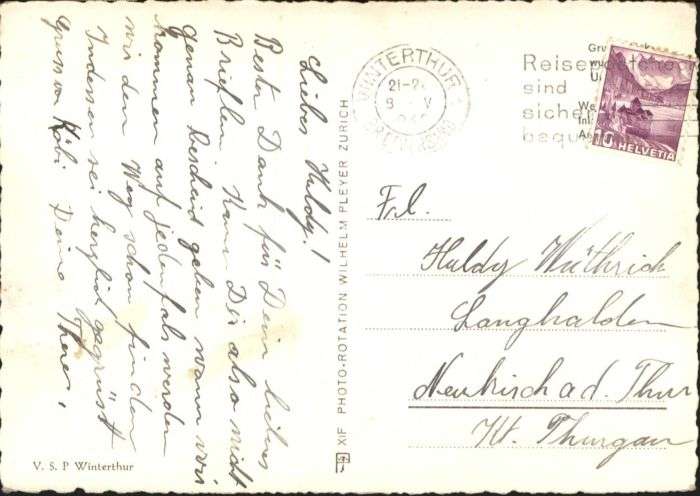 Liebes Huldy!
Besten Dank für Dein liebes
Brieflein. Kann Dir also nicht
genau Bescheid geben wann wir
kommen auf jedenfals werden
wir den Weg schon finden
Indessen sei herzlich gegrüsst
Gruss von Köbi Deine
V. S. P Winterthur
XIF PHOTO-ROTATION WILHELM PLEYER ZURICH
WINTERTHUR
21-2
8 V
Reise
sind
siche
beque
10 HELVETIA
Frl.
Huldy Wüthrich
Langhalden
Neukirch a. d. Thur
Kt. Thurgau